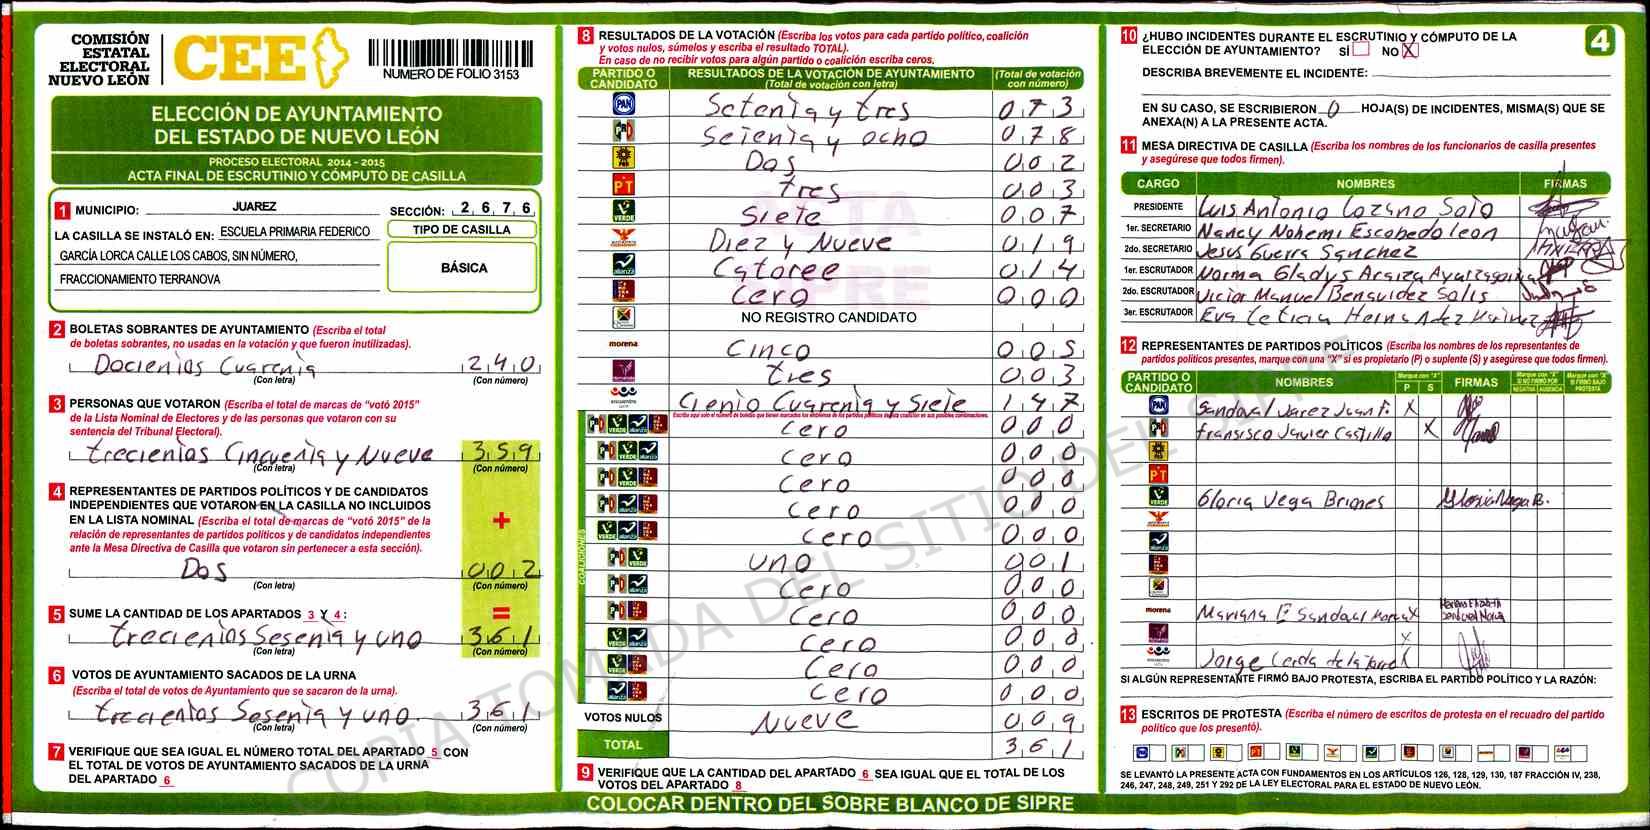 COMISIÓN
ESTATAL
ELECTORAL
NUEVO LEÓN
CEE
NUMERO DE FOLIO 3153
ELECCIÓN DE AYUNTAMIENTO
DEL ESTADO DE NUEVO LEÓN
PROCESO ELECTORAL 2014 - 2015
ACTA FINAL DE ESCRUTINIO Y CÓMPUTO DE CASILLA
1 MUNICIPIO: JUAREZ SECCIÓN: 2 6 7 6
LA CASILLA SE INSTALÓ EN: ESCUELA PRIMARIA FEDERICO
GARCÍA LORCA CALLE LOS CABOS, SIN NÚMERO,
FRACCIONAMIENTO TERRANOVA
TIPO DE CASILLA
BÁSICA
2 BOLETAS SOBRANTES DE AYUNTAMIENTO (Escriba el total
de boletas sobrantes, no usadas en la votación y que fueron inutilizadas).
Docientos Cuarenta 2 4 0
(Con letra) (Con número)
3 PERSONAS QUE VOTARON (Escriba el total de marcas de "votó 2015"
de la Lista Nominal de Electores y de las personas que votaron con su
sentencia del Tribunal Electoral).
trecientos Cincuenta y Nueve 3 5 9
(Con letra) (Con número)
4 REPRESENTANTES DE PARTIDOS POLÍTICOS Y DE CANDIDATOS
INDEPENDIENTES QUE VOTARON EN LA CASILLA NO INCLUIDOS
EN LA LISTA NOMINAL (Escriba el total de marcas de "votó 2015" de la
relación de representantes de partidos políticos y de candidatos independientes
ante la Mesa Directiva de Casilla que votaron sin pertenecer a esta sección).
+
Dos 0 0 2
(Con letra) (Con número)
5 SUME LA CANTIDAD DE LOS APARTADOS 3 Y 4: =
trecientos Sesenta y uno 3 6 1
(Con letra) (Con número)
6 VOTOS DE AYUNTAMIENTO SACADOS DE LA URNA
(Escriba el total de votos de Ayuntamiento que se sacaron de la urna).
trecientos Sesenta y uno. 3 6 1
(Con letra) (Con número)
7 VERIFIQUE QUE SEA IGUAL EL NÚMERO TOTAL DEL APARTADO 5 CON
EL TOTAL DE VOTOS DE AYUNTAMIENTO SACADOS DE LA URNA
DEL APARTADO 6
8 RESULTADOS DE LA VOTACIÓN (Escriba los votos para cada partido político, coalición
y votos nulos, súmelos y escriba el resultado TOTAL).
En caso de no recibir votos para algún partido o coalición escriba ceros.
PARTIDO O CANDIDATO RESULTADOS DE LA VOTACIÓN DE AYUNTAMIENTO (Total de votación con letra) (Total de votación con número)
PAN Setenta y tres 0 7 3
PRI Setenta y ocho 0 7 8
PRD Dos 0 0 2
PT tres 0 0 3
VERDE Siete 0 0 7
Diez y Nueve 0 1 9
alianza Catorce 0 1 4
Cero 0 0 0
NO REGISTRO CANDIDATO
morena Cinco 0 0 5
tres 0 0 3
encuentro Ciento Cuarenta y Siete 1 4 7
Cero 0 0 0
Cero 0 0 0
Cero 0 0 0
Cero 0 0 0
Cero 0 0 0
uno 0 0 1
Cero 0 0 0
Cero 0 0 0
Cero 0 0 0
Cero 0 0 0
Cero 0 0 0
COALICIONES
VOTOS NULOS Nueve 0 0 9
TOTAL 3 6 1
9 VERIFIQUE QUE LA CANTIDAD DEL APARTADO 6 SEA IGUAL QUE EL TOTAL DE LOS
VOTOS DEL APARTADO 8
COLOCAR DENTRO DEL SOBRE BLANCO DE SIPRE
ACTA
SIPRE
COPIA TOMADA DEL SITIO DEL SIPRE
10 ¿HUBO INCIDENTES DURANTE EL ESCRUTINIO Y CÓMPUTO DE LA
ELECCIÓN DE AYUNTAMIENTO? SÍ NO X
4
DESCRIBA BREVEMENTE EL INCIDENTE:
EN SU CASO, SE ESCRIBIERON 0 HOJA(S) DE INCIDENTES, MISMA(S) QUE SE
ANEXA(N) A LA PRESENTE ACTA.
11 MESA DIRECTIVA DE CASILLA (Escriba los nombres de los funcionarios de casilla presentes
y asegúrese que todos firmen).
CARGO NOMBRES FIRMAS
PRESIDENTE Luis Antonio Lozano Soto
1er. SECRETARIO Nancy Nohemi Escobedo leon
2do. SECRETARIO Jesus Guerra Sanchez
1er. ESCRUTADOR Norma Gladys Araiza
2do. ESCRUTADOR Victor Manuel Benavidez Solis
3er. ESCRUTADOR Eva Leticia Hernandez
12 REPRESENTANTES DE PARTIDOS POLÍTICOS (Escriba los nombres de los representantes de
partidos políticos presentes, marque con una "X" si es propietario (P) o suplente (S) y asegúrese que todos firmen).
PARTIDO O CANDIDATO NOMBRES Marque con "X" P S FIRMAS Marque con "X" SI NO FIRMÓ POR NEGATIVA AUSENCIA Marque con "X" SI FIRMÓ BAJO PROTESTA
PAN Sandoval Juan F. X
PRI Fransisco Javier Castillo X
PRD
PT
VERDE Gloria Vega Briones Gloria Vega B.
morena Mariana E Sandoval X
X
encuentro Jorge Cerda de la Torre X
SI ALGÚN REPRESENTANTE FIRMÓ BAJO PROTESTA, ESCRIBA EL PARTIDO POLÍTICO Y LA RAZÓN:
13 ESCRITOS DE PROTESTA (Escriba el número de escritos de protesta en el recuadro del partido
político que los presentó).
SE LEVANTÓ LA PRESENTE ACTA CON FUNDAMENTOS EN LOS ARTÍCULOS 126, 128, 129, 130, 187 FRACCIÓN IV, 238,
246, 247, 248, 249, 251 Y 292 DE LA LEY ELECTORAL PARA EL ESTADO DE NUEVO LEÓN.